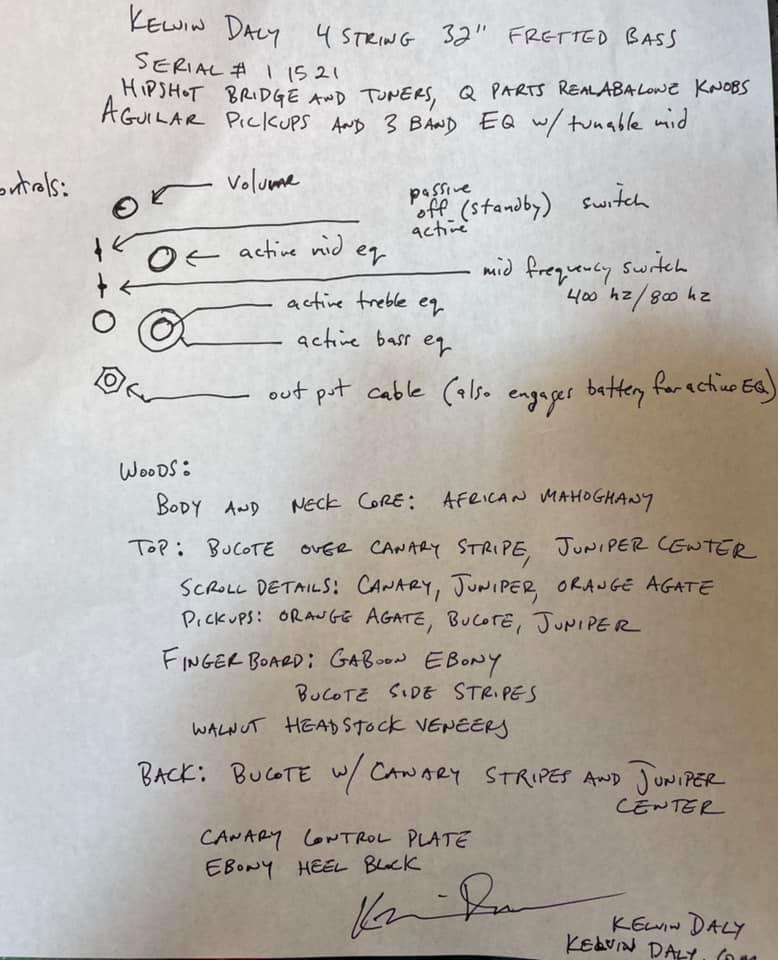 KELVIN DALY 4 STRING 32" FRETTED BASS
SERIAL # 1 15 21
HIPSHOT BRIDGE AND TUNERS, Q PARTS REALABALONE KNOBS
AGUILAR PICKUPS AND 3 BAND EQ w/ tunable mid
ontrols:
volume
passive
off (standby) switch
active
active mid eq
mid frequency switch
400 hz/800 hz
active treble eq
active bass eq
out put cable (also engages battery for active EQ)
WOODS:
BODY AND NECK CORE: AFRICAN MAHOGHANY
TOP: BUCOTE OVER CANARY STRIPE, JUNIPER CENTER
SCROLL DETAILS: CANARY, JUNIPER, ORANGE AGATE
PICKUPS: ORANGE AGATE, BUCOTE, JUNIPER
FINGERBOARD: GABOON EBONY
BUCOTE SIDE STRIPES
WALNUT HEADSTOCK VENEERS
BACK: BUCOTE W/ CANARY STRIPES AND JUNIPER
CENTER
CANARY CONTROL PLATE
EBONY HEEL BLOCK
KELVIN DALY
KELVIN DALY.com